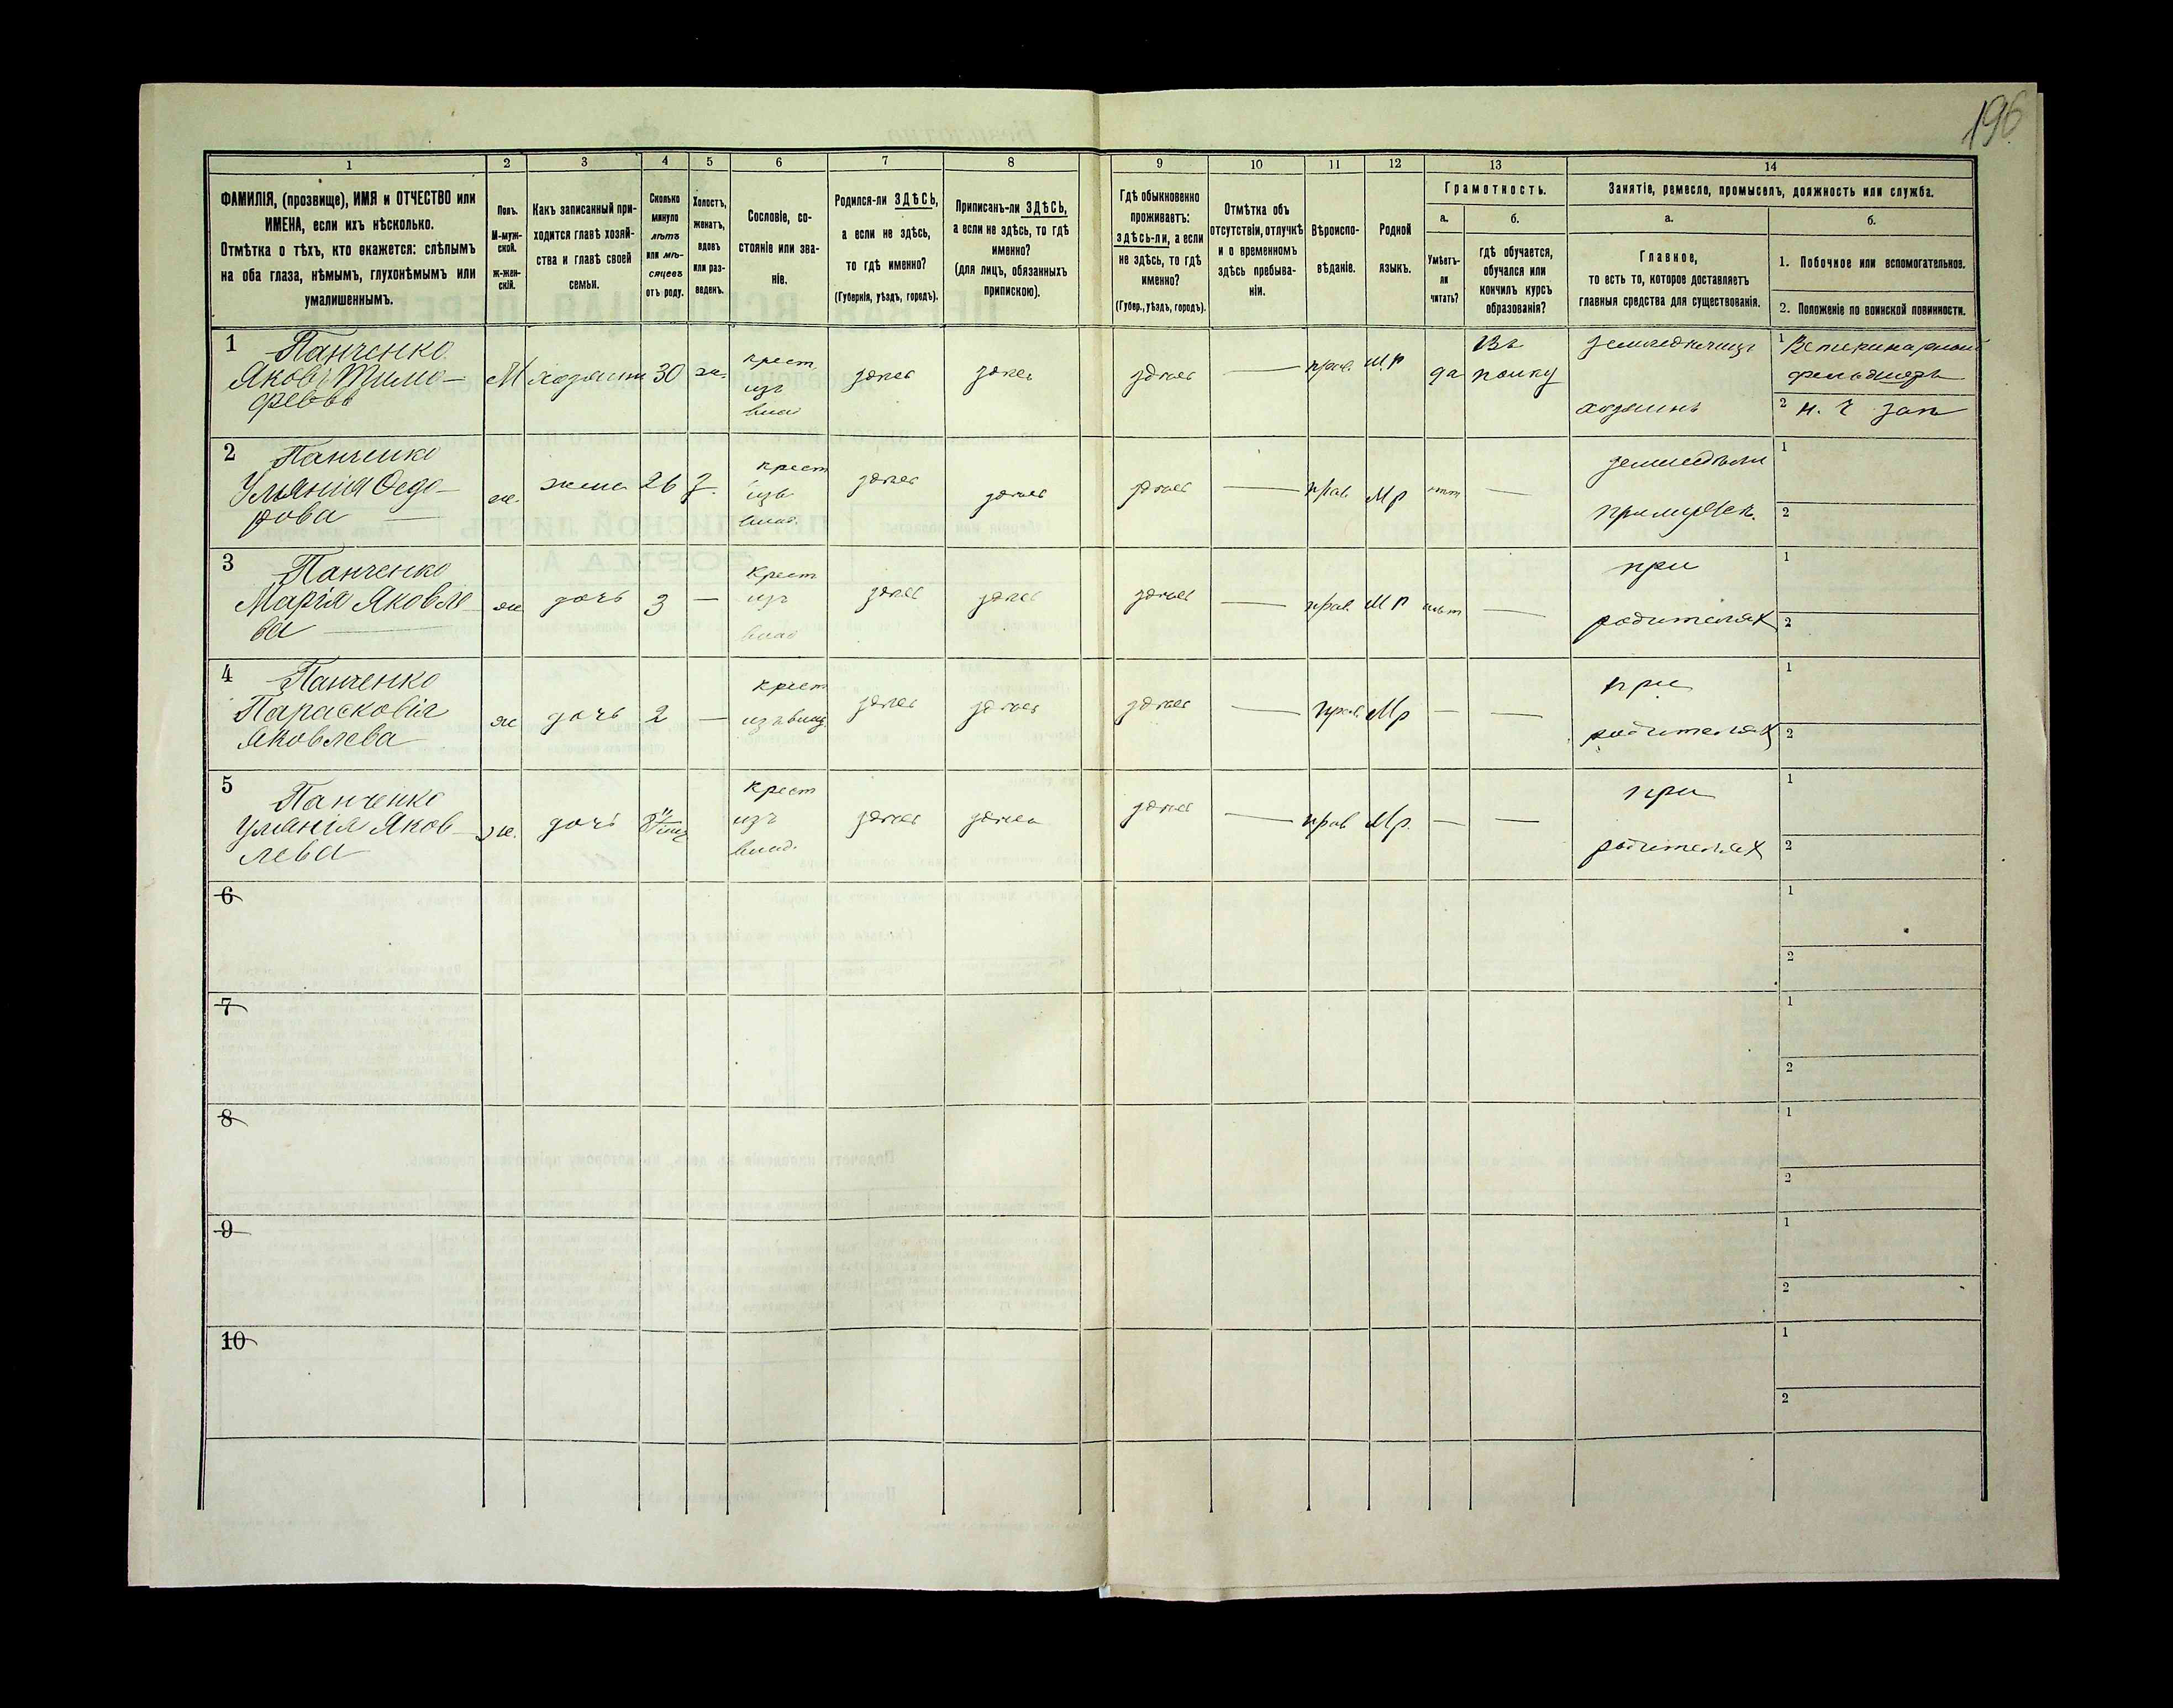 196
1
2
3
4
5
6
7
8
9
10
11
12
13
14
ФАМИЛІЯ, (прозвище), ИМЯ и ОТЧЕСТВО или
ИМЕНА, если ихъ нѣсколько.
Отмѣтка о тѣхъ, кто окажется: слѣпымъ
на оба глаза, нѣмымъ, глухонѣмымъ или
умалишеннымъ.
Полъ.
М-муж-
ской.
ж-жен-
скій.
Какъ записанный при-
ходится главѣ хозяй-
ства и главѣ своей
семьи.
Сколько
минуло
лѣтъ
или мѣ-
сяцевъ
отъ роду.
Холостъ,
женатъ,
вдовъ
или раз-
веденъ.
Сословіе, со-
стояніе или зва-
ніе.
Родился-ли ЗДѢСЬ,
а если не здѣсь,
то гдѣ именно?
(Губернія, уѣздъ, городъ).
Приписанъ-ли ЗДѢСЬ,
а если не здѣсь, то гдѣ
именно?
(для лицъ, обязанныхъ
припискою).
Гдѣ обыкновенно
проживаетъ:
здѣсь-ли, а если
не здѣсь, то гдѣ
именно?
(Губер., уѣздъ, городъ).
Отмѣтка объ
отсутствіи, отлучкѣ
и о временномъ
здѣсь пребыва-
ніи.
Вѣроиспо-
вѣданіе.
Родной
языкъ.
Грамотность.
а.
б.
Умѣетъ-
ли
читать?
гдѣ обучается,
обучался или
кончилъ курсъ
образованія?
Занятіе, ремесло, промыселъ, должность или служба.
а.
б.
Главное,
то есть то, которое доставляетъ
главныя средства для существованія.
1. Побочное или вспомогательное.
2. Положеніе по воинской повинности.
1 Панченко
Яковъ Тимо-
феевъ
М хозяинъ 30 ж.
крест
изъ
влад
здѣсь здѣсь здѣсь — прав. М.р да
Въ
полку
хозяинъ
1 Ветеринарный
фельдшеръ
2 н. ч зап
2 Панченко
Ульянія Ѳедо-
рова —
ж. жена 26 З.
крест
изъ
влад.
здѣсь здѣсь здѣсь — прав. Мр нѣт —
1
2
3 Панченко
Марія Яковле
ва —
ж дочь 3 —
крест
изъ
влад
здѣсь здѣсь здѣсь — прав. М р нѣт —
при
родителях
1
2
4 Панченко
Парасковія
Яковлева
ж дочь 2 —
крест
здѣсь здѣсь здѣсь — прав. Мр — —
при
родителях
1
2
5 Панченко
Ульянія Яков-
лева
ж. дочь
крест
изъ
влад.
здѣсь здѣсь здѣсь — прав Мр. — —
при
родителях
1
2
6
1
2
7
1
2
8
1
2
9
1
2
10
1
2